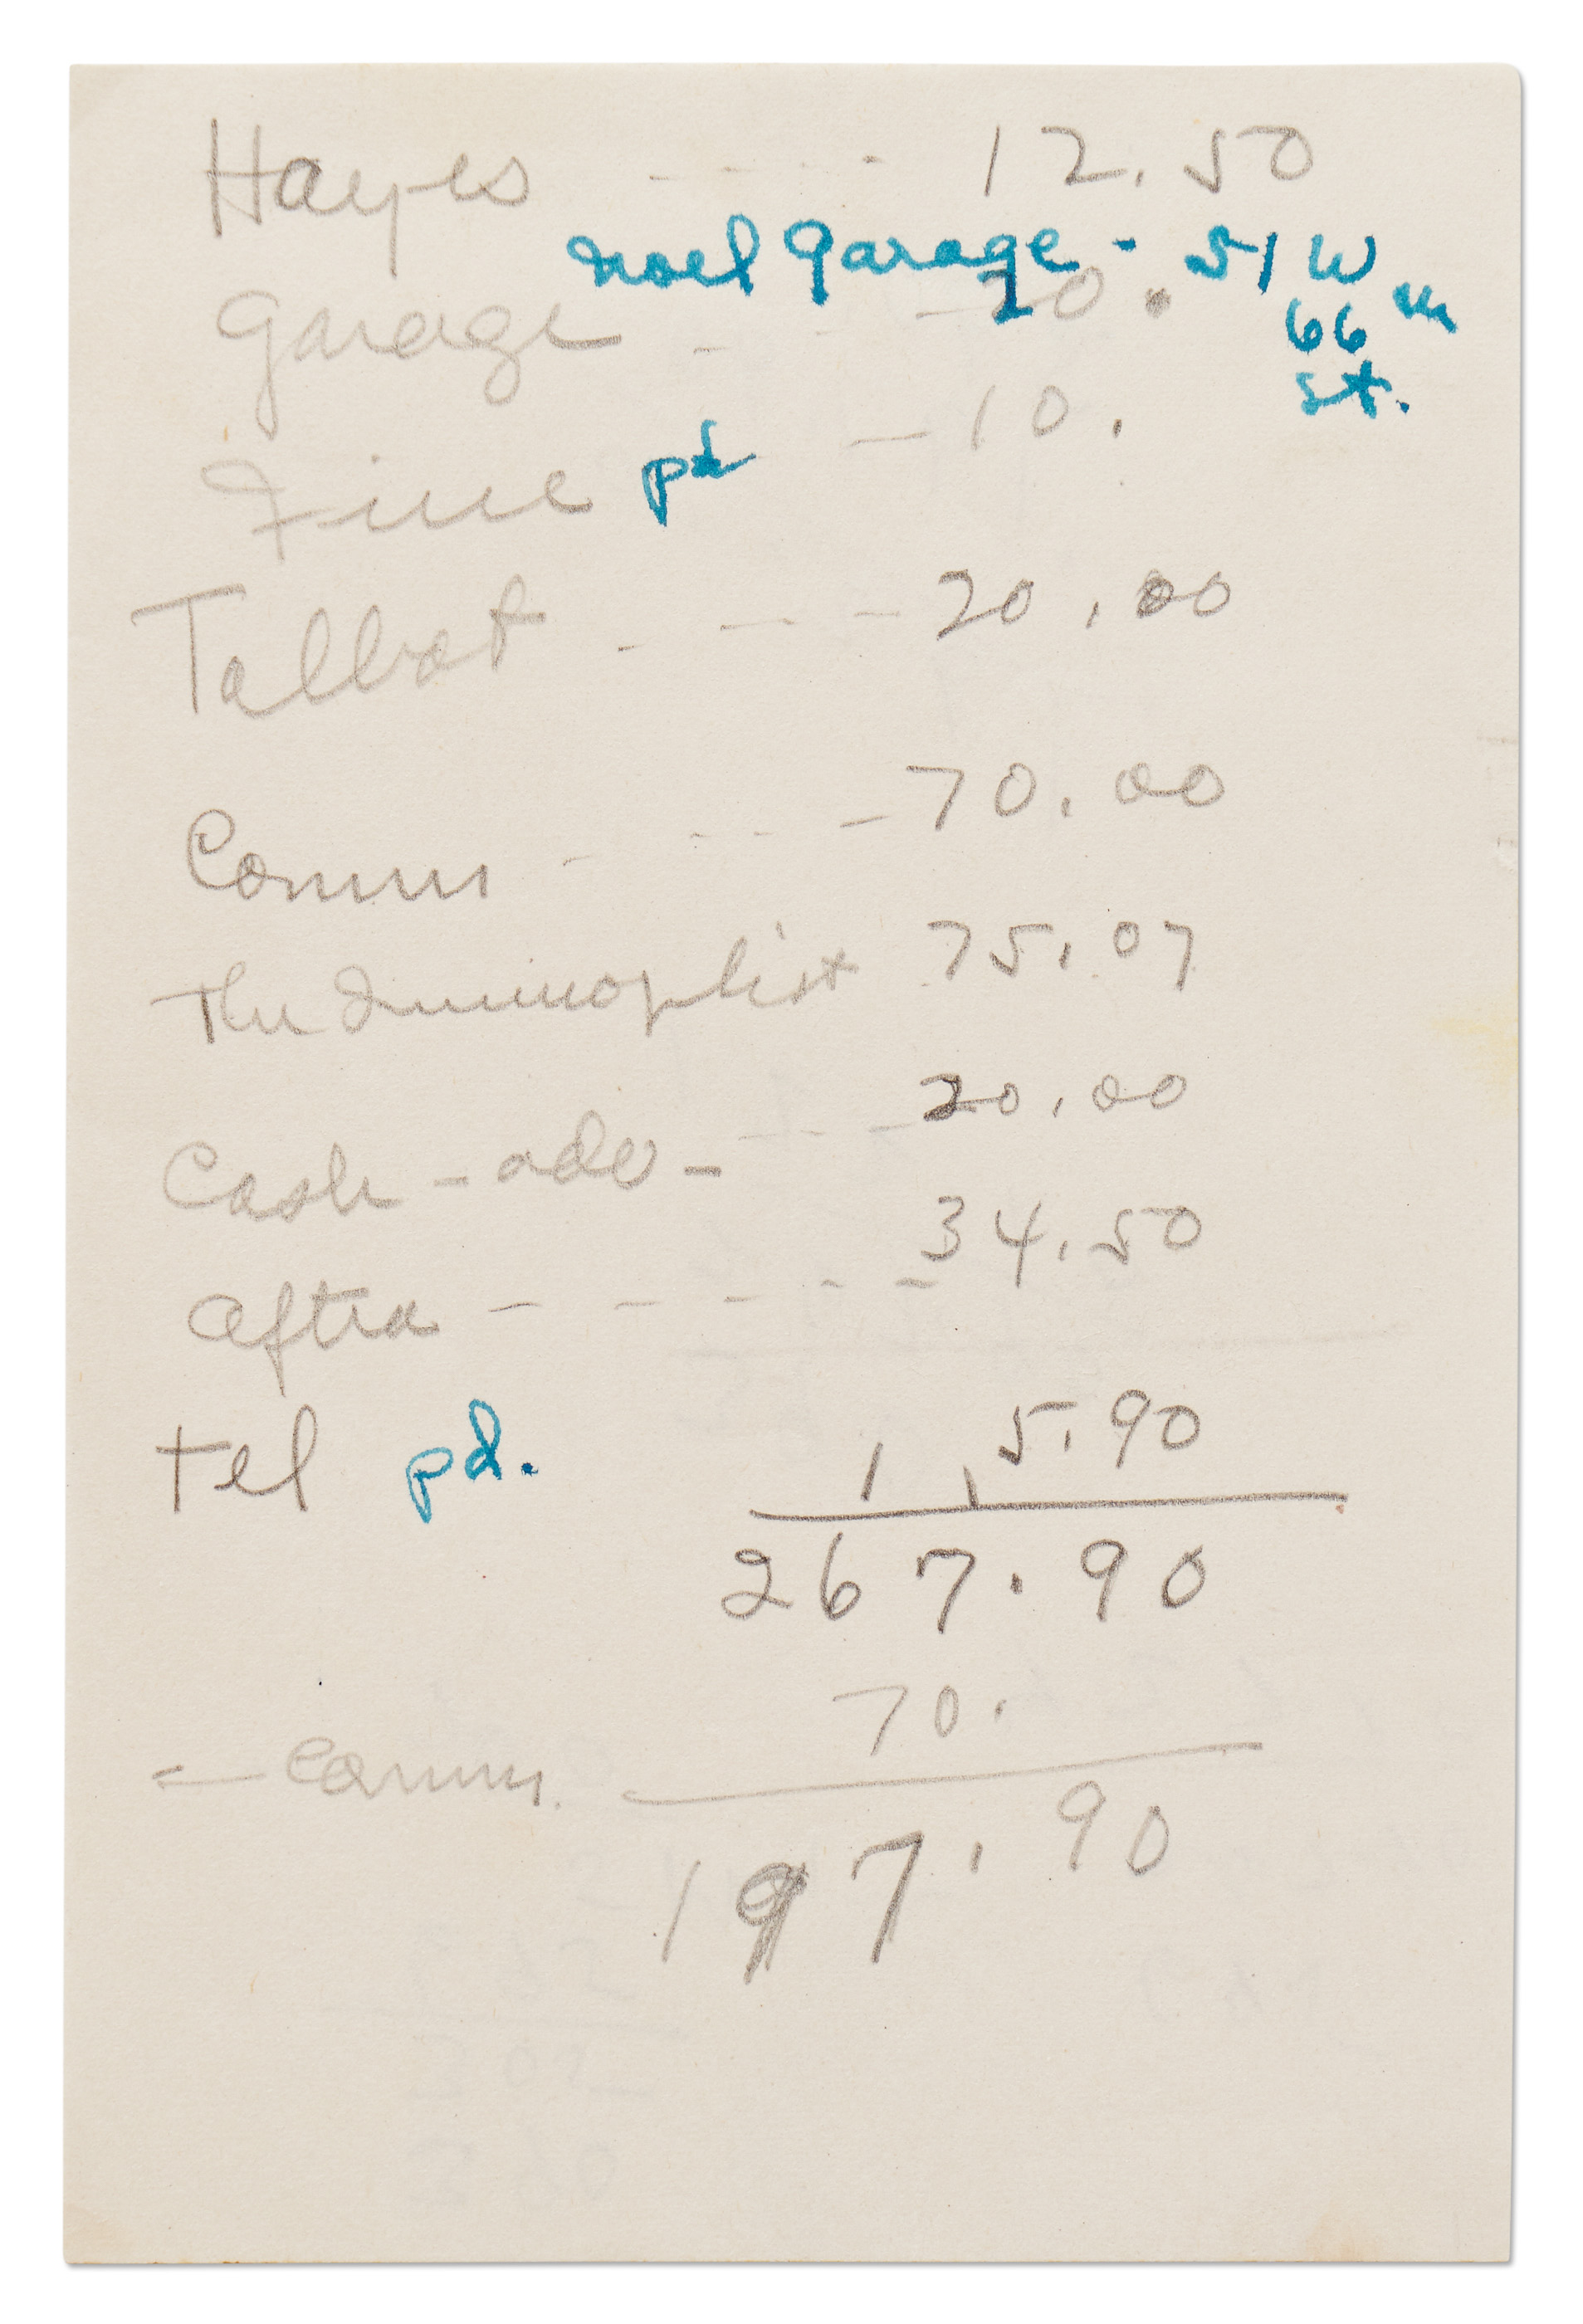 Hayes - - - - 12.50
Noel Garage - 51 W
66 th
St.
Garage - - - 20.
Fine pd - 10.
Talbot - - - - 20.00
Comm - - - - 70.00
The 75.07
Cash - adv - - - - 20.00
Aftra - - - - - - 34.50
Tel pd. 5.90
1 1
267.90
70.
- Comm.
197.90